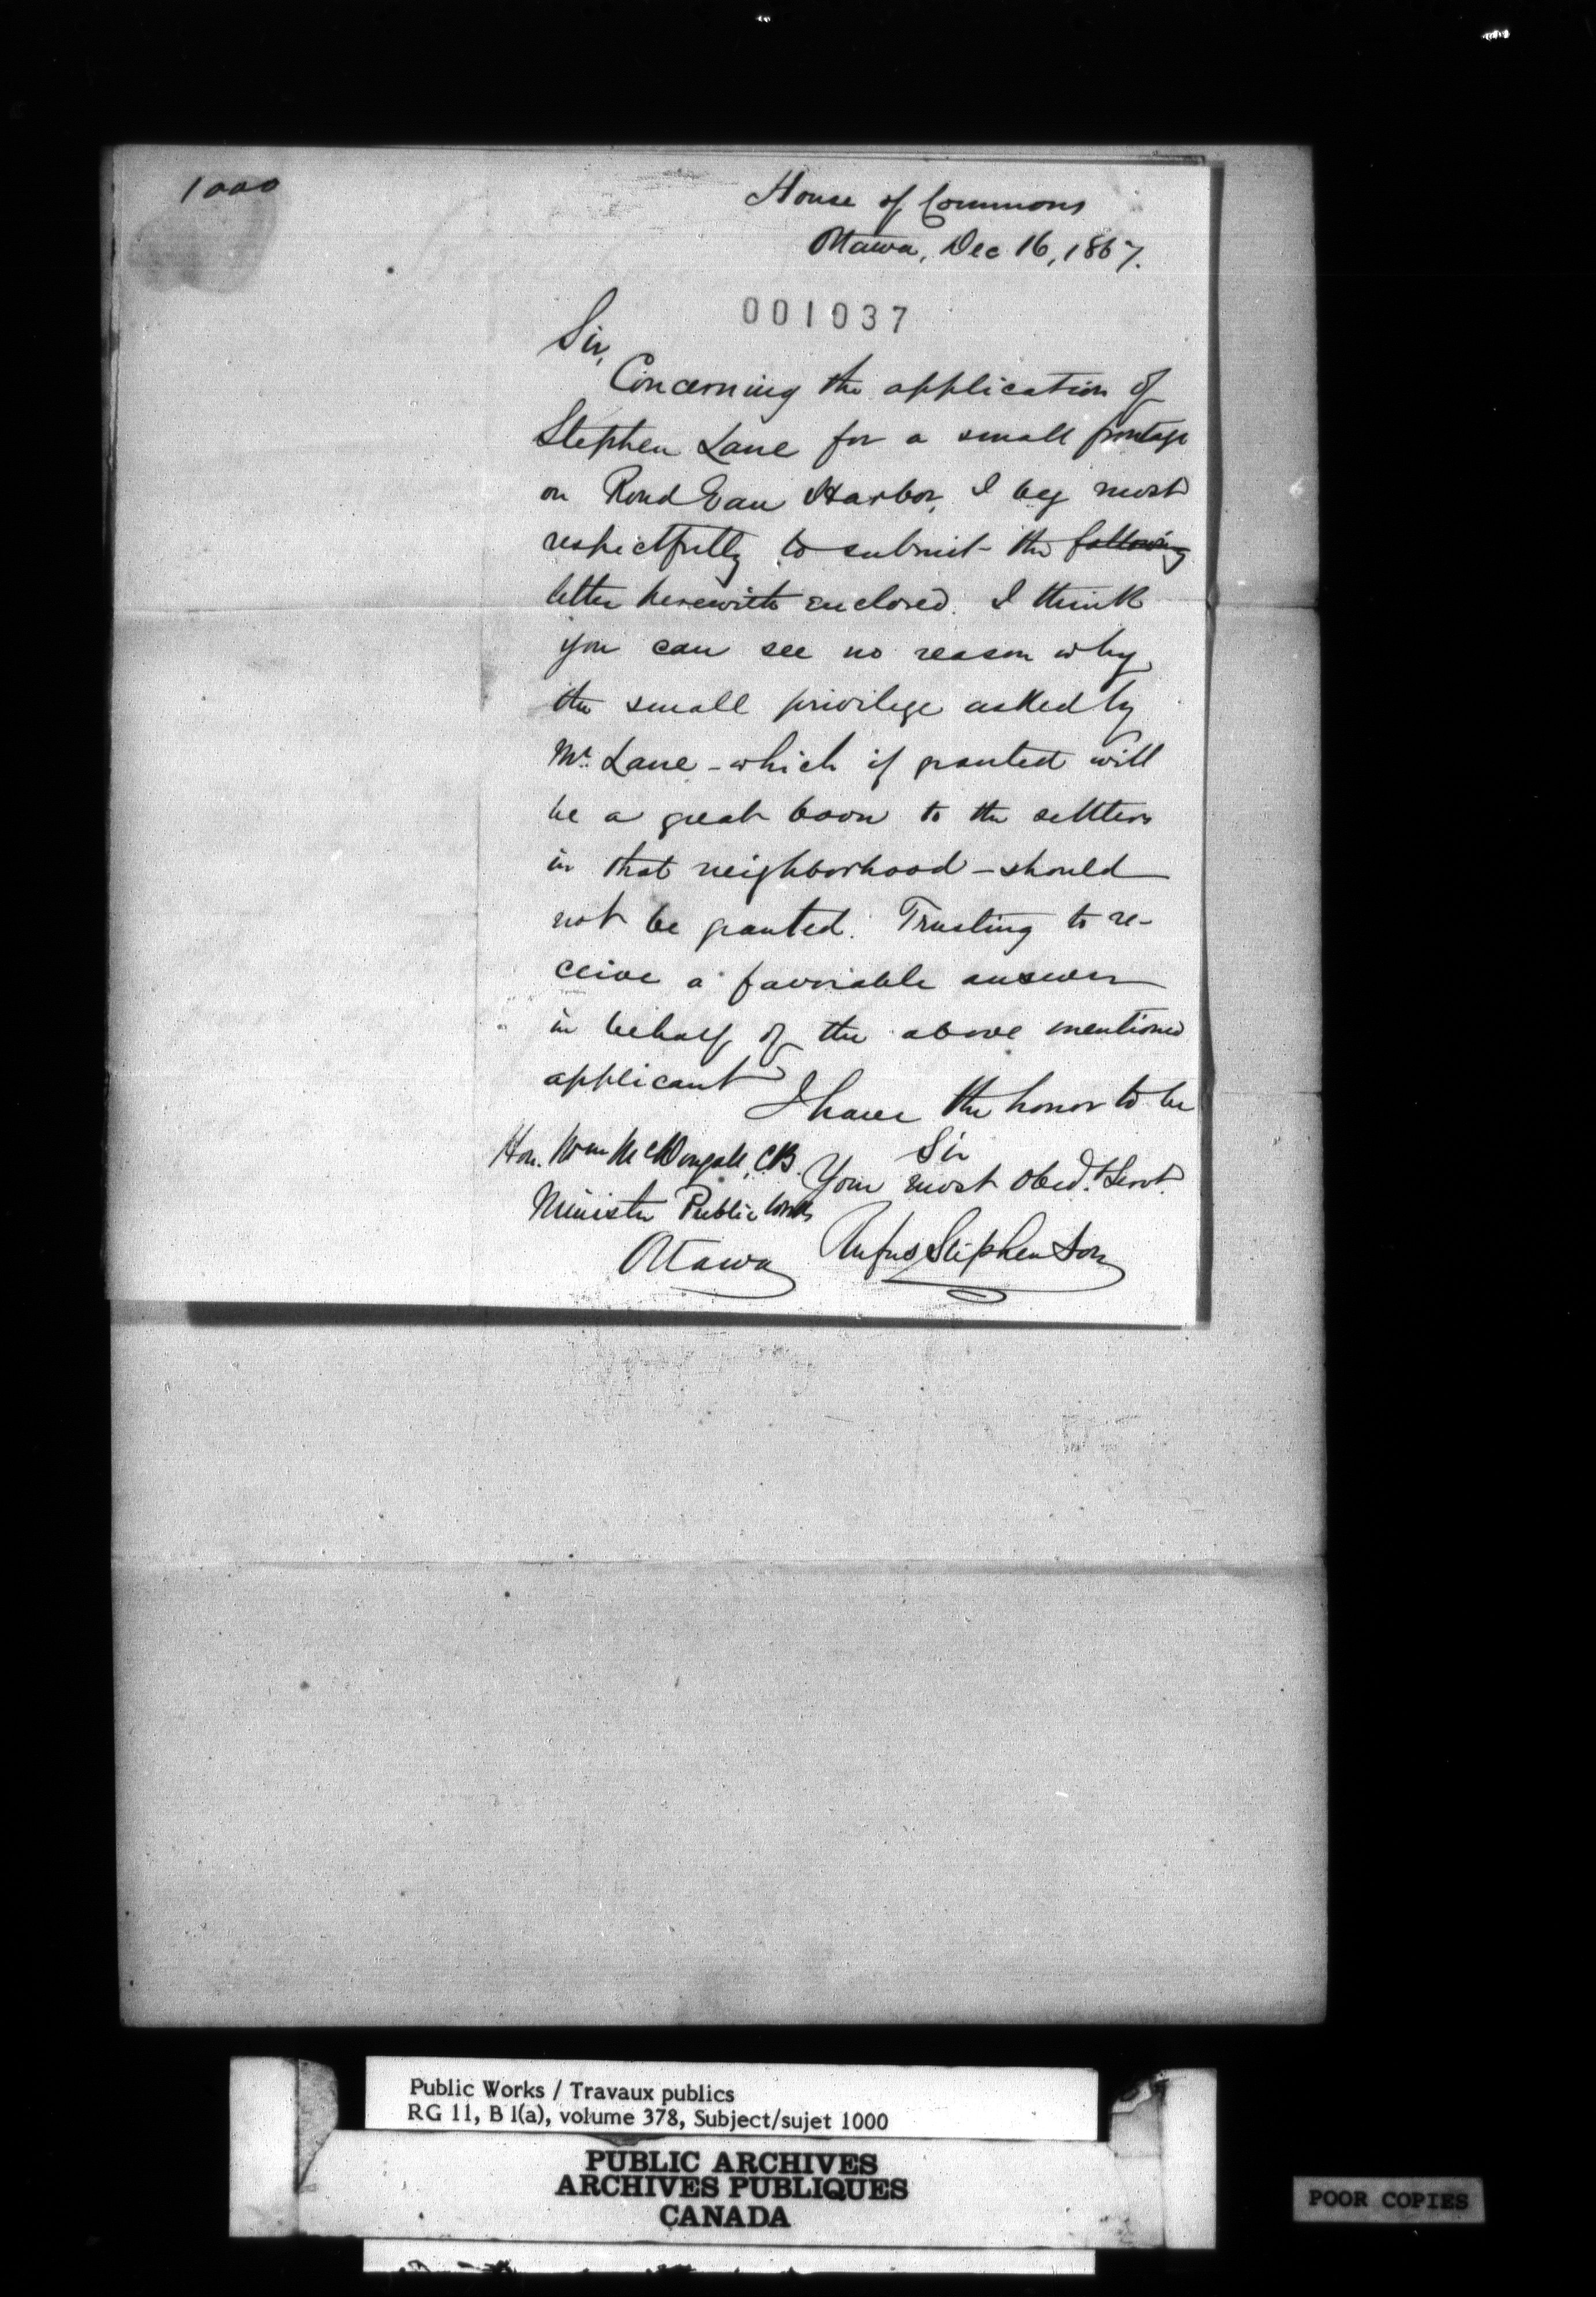 1000
House of Commons
Ottawa, Dec 16, 1867.
001037
Sir,
Concerning the application of
Stephen Lane for a small frontage
on Rond Eau Harbor, I beg most
respectfully to submit the following
letter herewith enclosed. I think
you can see no reason why
the small privilege asked by
Mr. Lane - which if granted will
be a great boon to the settlers
in that neighborhood - should
not be granted. Trusting to re-
ceive a favorable answer
in behalf of the above mentioned
applicant
I have the honor to be
Sir
Your most obedt. Servt.
Rufus Stephenson
Hon. Wm McDougall, C.B.
Minister Public Works
Ottawa
Public Works / Travaux publics
RG 11, B 1(a), volume 378, Subject/sujet 1000
PUBLIC ARCHIVES
ARCHIVES PUBLIQUES
CANADA
POOR COPIES